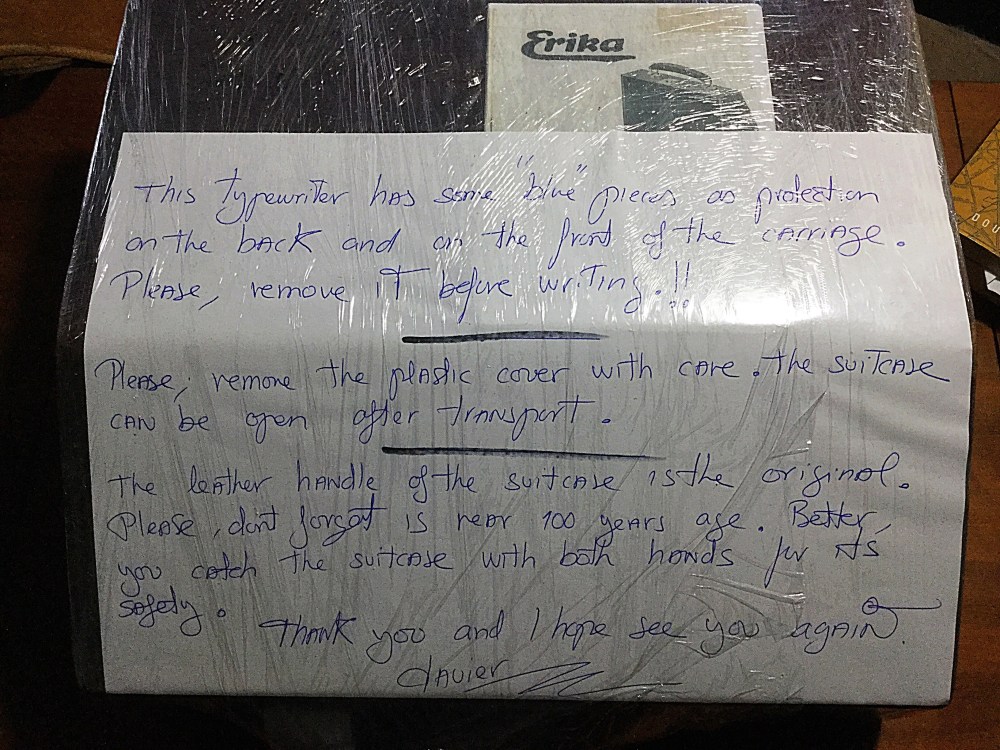 Erika
This typewriter has some "blue" pieces as protection
on the back and on the front of the carriage.
Please, remove it before writing.!!
Please, remove the plastic cover with care. The suitcase
can be open after transport.
The leather handle of the suitcase is the original.
Please, dont forget is near 100 years age. Better,
you catch the suitcase with both hands for its
safety.
Thank you and I hope see you again.
Javier
DOU